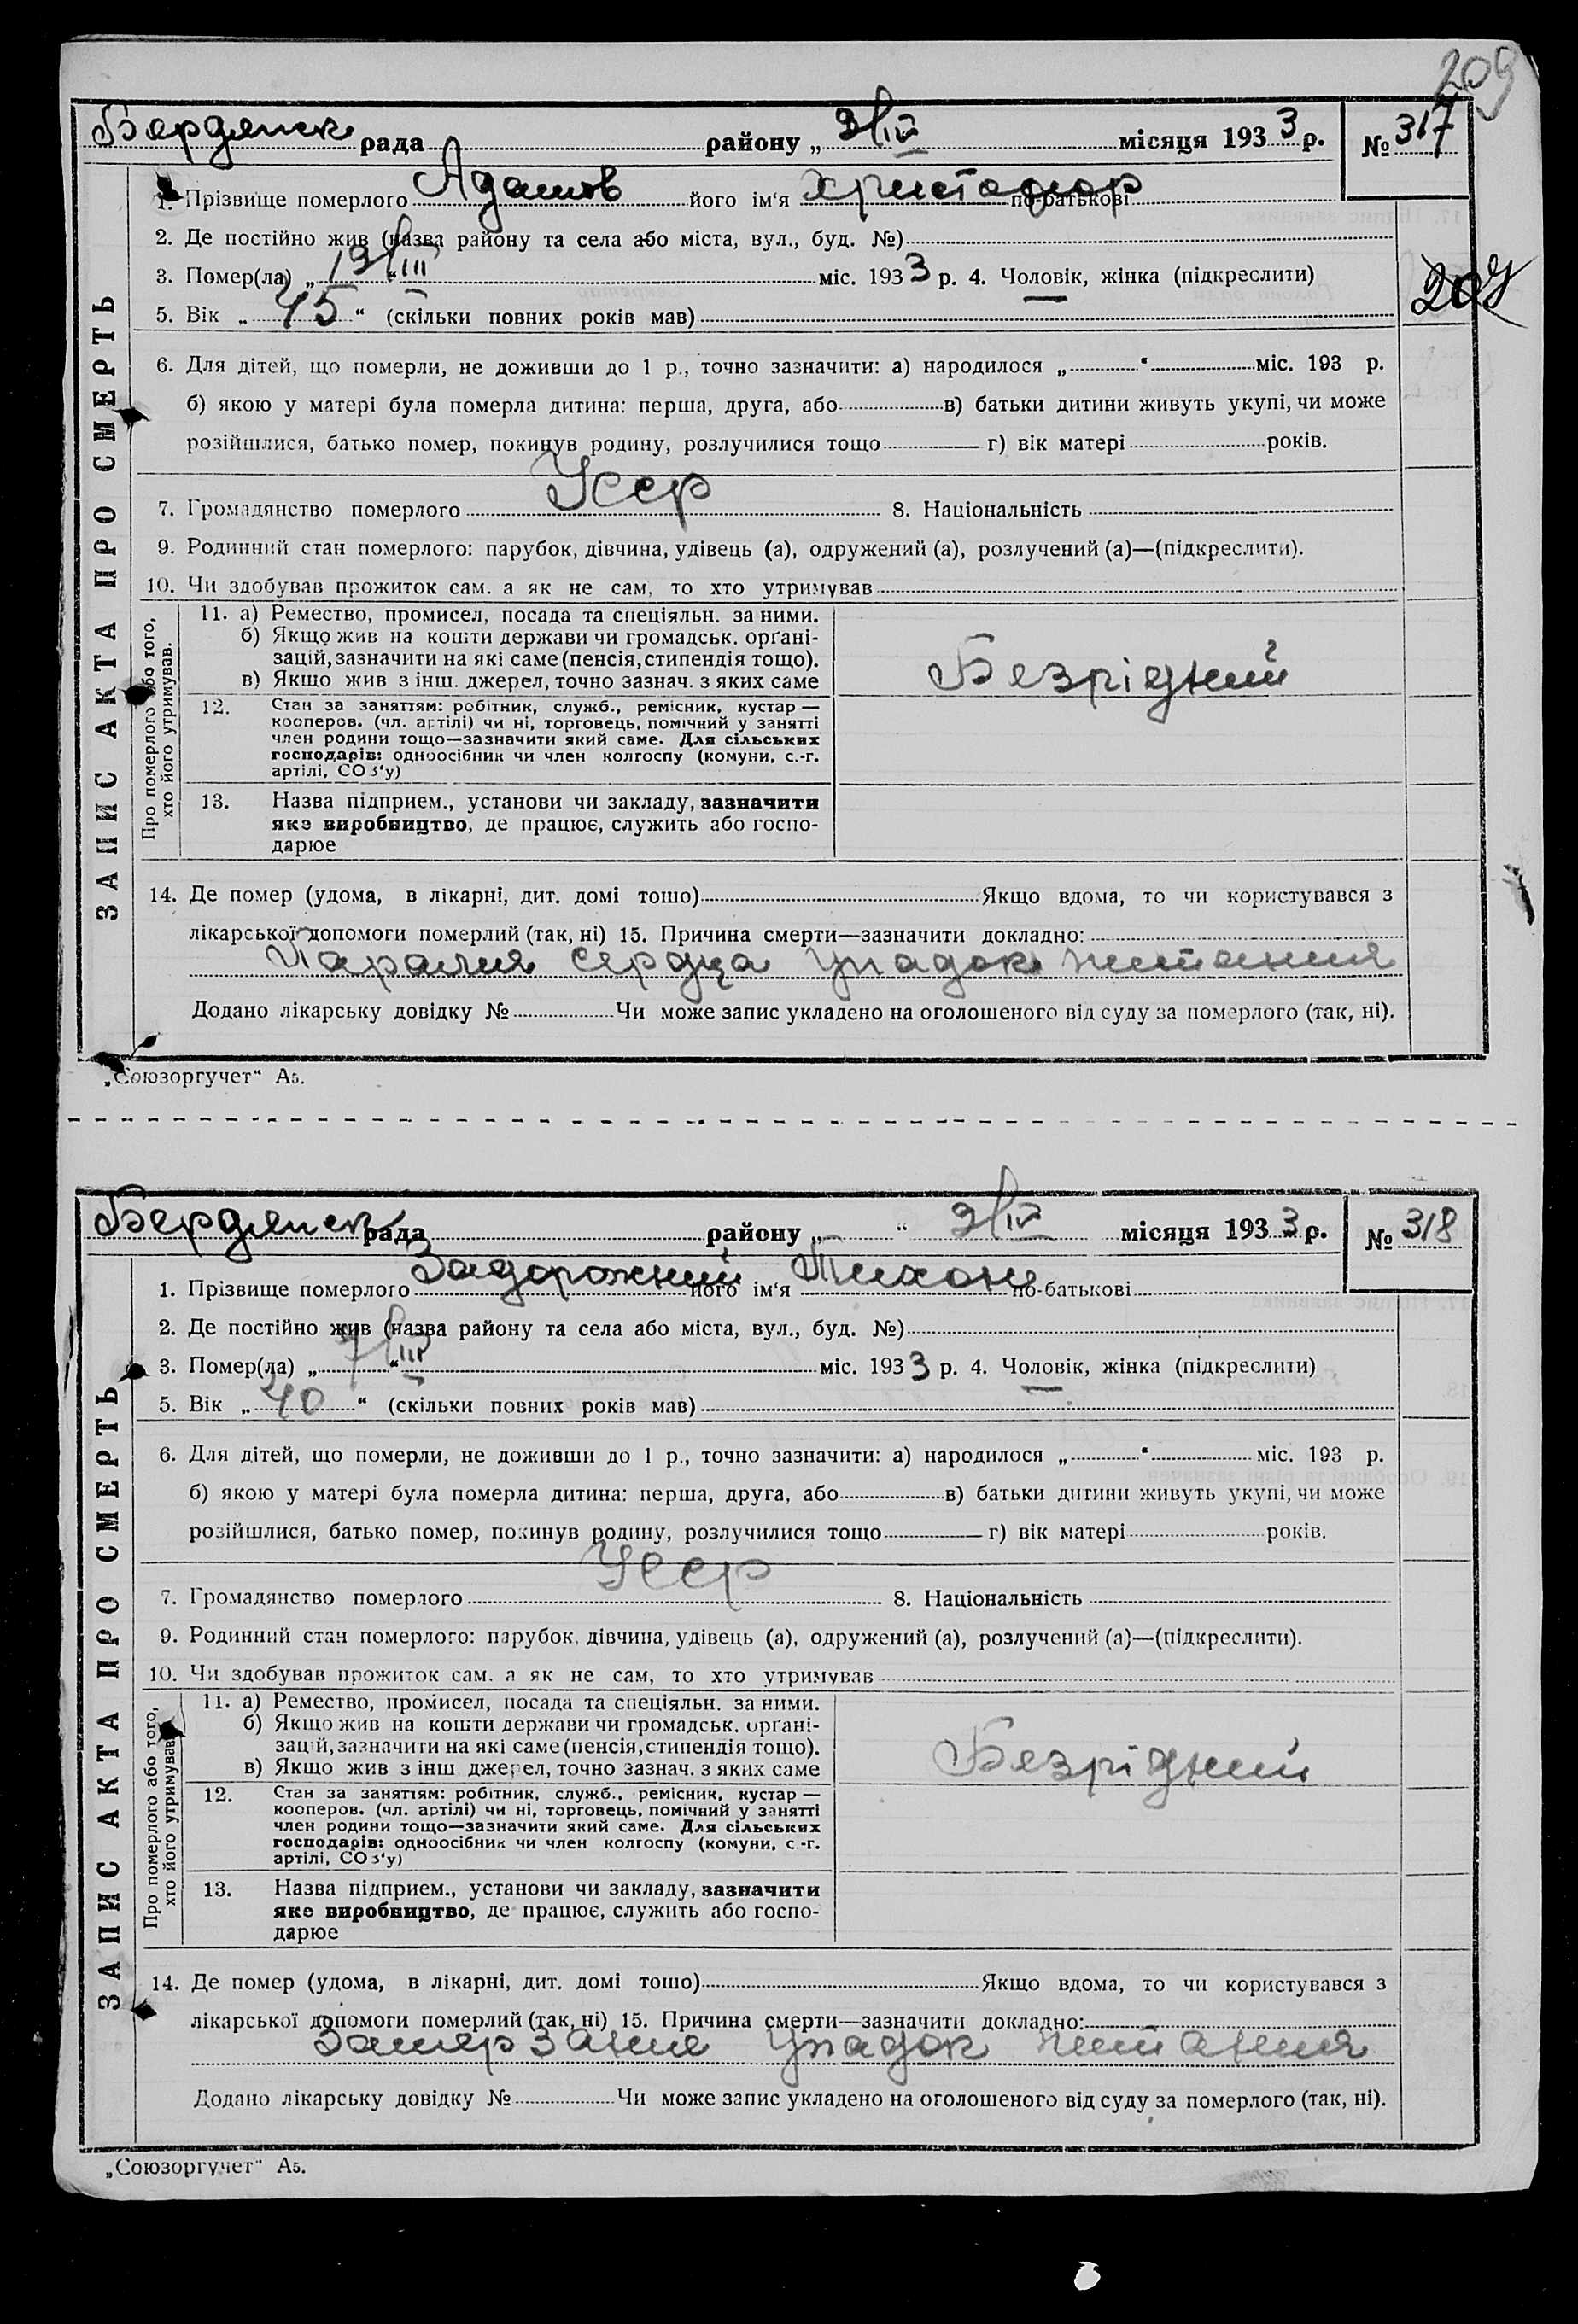 209
Бердянск рада района „ 3/IV місяця 1933 р. № 317
1. Прізвище померлого Адамов його ім‘я Христофор по-батькові
2. Де постійно жив (назва району та села або міста, вул., буд. №)
3. Помер(ла) „ 13/III “ міс. 1933 р. 4. Чоловік, жінка (підкреслити)
207
5. Вік „ 45 “ (скільки повних років мав)
6. Для дітей, що померли, не доживши до 1 р., точно зазначити: а) народилося „ “ міс. 193 р.
б) якою у матері була померла дитина: перша, друга, або в) батьки дитини живуть укупі, чи може
розійшлися, батько помер, покинув родину, розлучилися тощо г) вік матері років.
7. Громадянство померлого Усср 8. Національність
9. Родинний стан померлого: парубок, дівчина, удівець (а), одружений (а), розлучений (а)—(підкреслити).
10. Чи здобував прожиток сам. а як не сам, то хто утримував
ЗАПИС АКТА ПРО СМЕРТЬ
Про померлого або того,
хто його утримував.
11. а) Ремество, промисел, посада та спеціяльн. за ними.
б) Якщо жив на кошти держави чи громадськ. орґані-
зацій, зазначити на які саме (пенсія, стипендія тощо).
в) Якщо жив з інш. джерел, точно зазнач. з яких саме
Безрідний
12. Стан за заняттям: робітник, служб., ремісник, кустар —
кооперов. (чл. артілі) чи ні, торговець, помічний у занятті
член родини тощо—зазначити який саме. Для сільських
господарів: одноосібник чи член колгоспу (комуни, с.-г.
артілі, СОЗ‘у)
13. Назва підприєм., установи чи закладу, зазначити
яке виробництво, де працює, служить або госпо-
дарює
14. Де помер (удома, в лікарні, дит. домі тощо) Якщо вдома, то чи користувався з
лікарської допомоги померлий (так, ні) 15. Причина смерти—зазначити докладно:
Паралия сердца упадок питания
Додано лікарську довідку № Чи може запис укладено на оголошеного від суду за померлого (так, ні).
„Союзоргучет“ А5.
Бердянск рада району „ “ 3/IV місяця 1933 р. № 318
1. Прізвище померлого Задорожний його ім‘я Тихон по-батькові
2. Де постійно жив (назва району та села або міста, вул., буд. №)
3. Помер(ла) „ 7/III “ міс. 1933 р. 4. Чоловік, жінка (підкреслити)
5. Вік „ 40 “ (скільки повних років мав)
6. Для дітей, що померли, не доживши до 1 р., точно зазначити: а) народилося „ “ міс. 193 р.
б) якою у матері була померла дитина: перша, друга, або в) батьки дитини живуть укупі, чи може
розійшлися, батько помер, покинув родину, розлучилися тощо г) вік матері років.
7. Громадянство померлого Усср 8. Національність
9. Родинний стан померлого: парубок, дівчина, удівець (а), одружений (а), розлучений (а)—(підкреслити).
10. Чи здобував прожиток сам. а як не сам, то хто утримував
ЗАПИС АКТА ПРО СМЕРТЬ
Про померлого або того,
хто його утримував.
11. а) Ремество, промисел, посада та спеціяльн. за ними.
б) Якщо жив на кошти держави чи громадськ. орґані-
зацій, зазначити на які саме (пенсія, стипендія тощо).
в) Якщо жив з інш. джерел, точно зазнач. з яких саме
Безрідний
12. Стан за заняттям: робітник, служб., ремісник, кустар —
кооперов. (чл. артілі) чи ні, торговець, помічний у занятті
член родини тощо—зазначити який саме. Для сільських
господарів: одноосібник чи член колгоспу (комуни, с.-г.
артілі, СОЗ‘у)
13. Назва підприєм., установи чи закладу, зазначити
яке виробництво, де працює, служить або госпо-
дарює
14. Де помер (удома, в лікарні, дит. домі тощо) Якщо вдома, то чи користувався з
лікарської допомоги померлий (так, ні) 15. Причина смерти—зазначити докладно:
Замерзание упадок питания
Додано лікарську довідку № Чи може запис укладено на оголошеного від суду за померлого (так, ні).
„Союзоргучет“ А5.